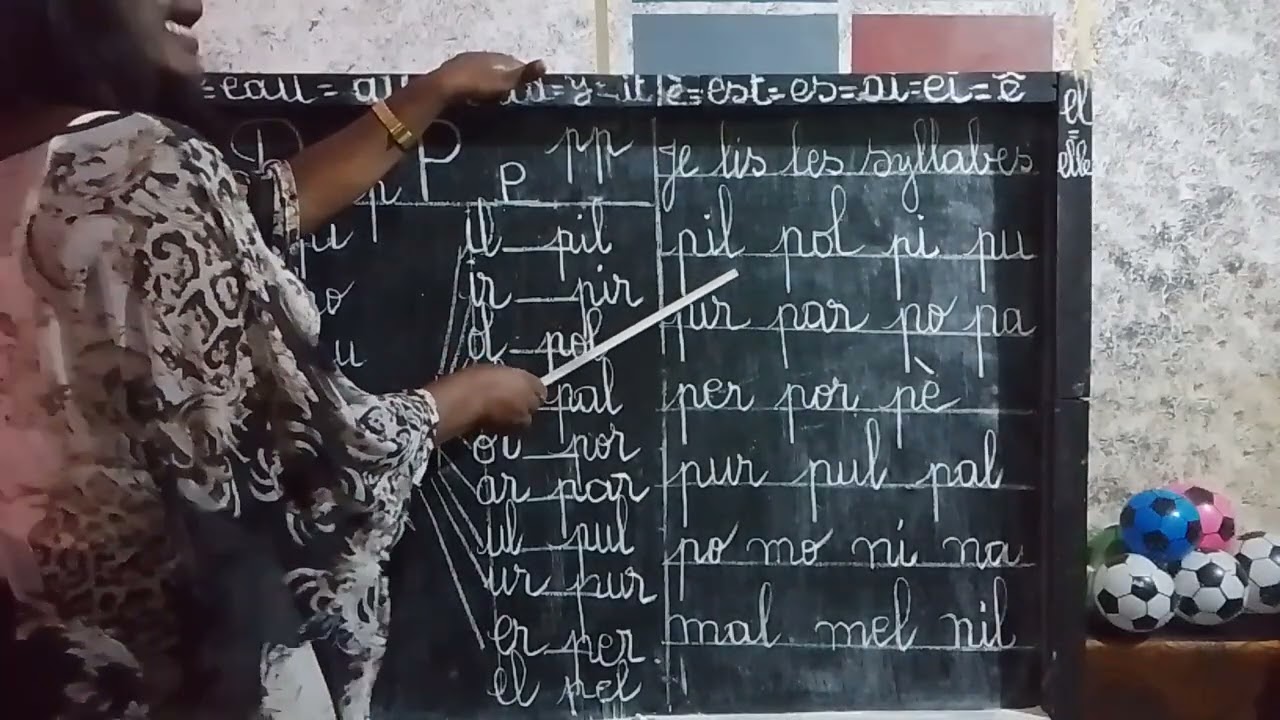 = eau = au = y = it è = est = es = ai = ei = ê
el
=
elle
P
p P P pp
pu
po
u
il pil
ir pir
ol pol
pal
or por
ar par
ul pul
ur pur
er per
el pel
je lis les syllabes
pil pol pi pu
pir par po pa
per por pè
pur pul pal
po mo ni na
mal mel nil